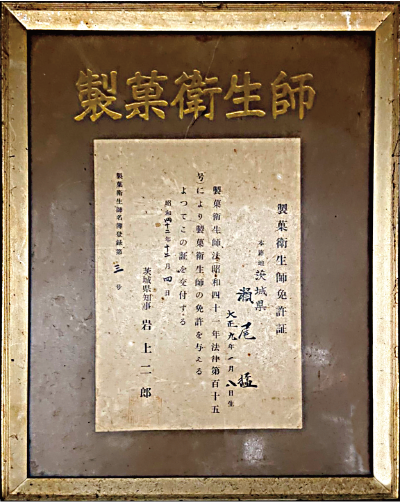 製菓衛生師
製菓衛生師免許証
本籍地 茨城県
瀬尾猛
大正九年一月八日生
製菓衛生師法昭和四十一年法律第百十五
号により製菓衛生師の免許を与える
よつてこの証を交付する
昭和四十二年十二月四日
茨城県知事 岩上二郎
製菓衛生師名簿登録第三号